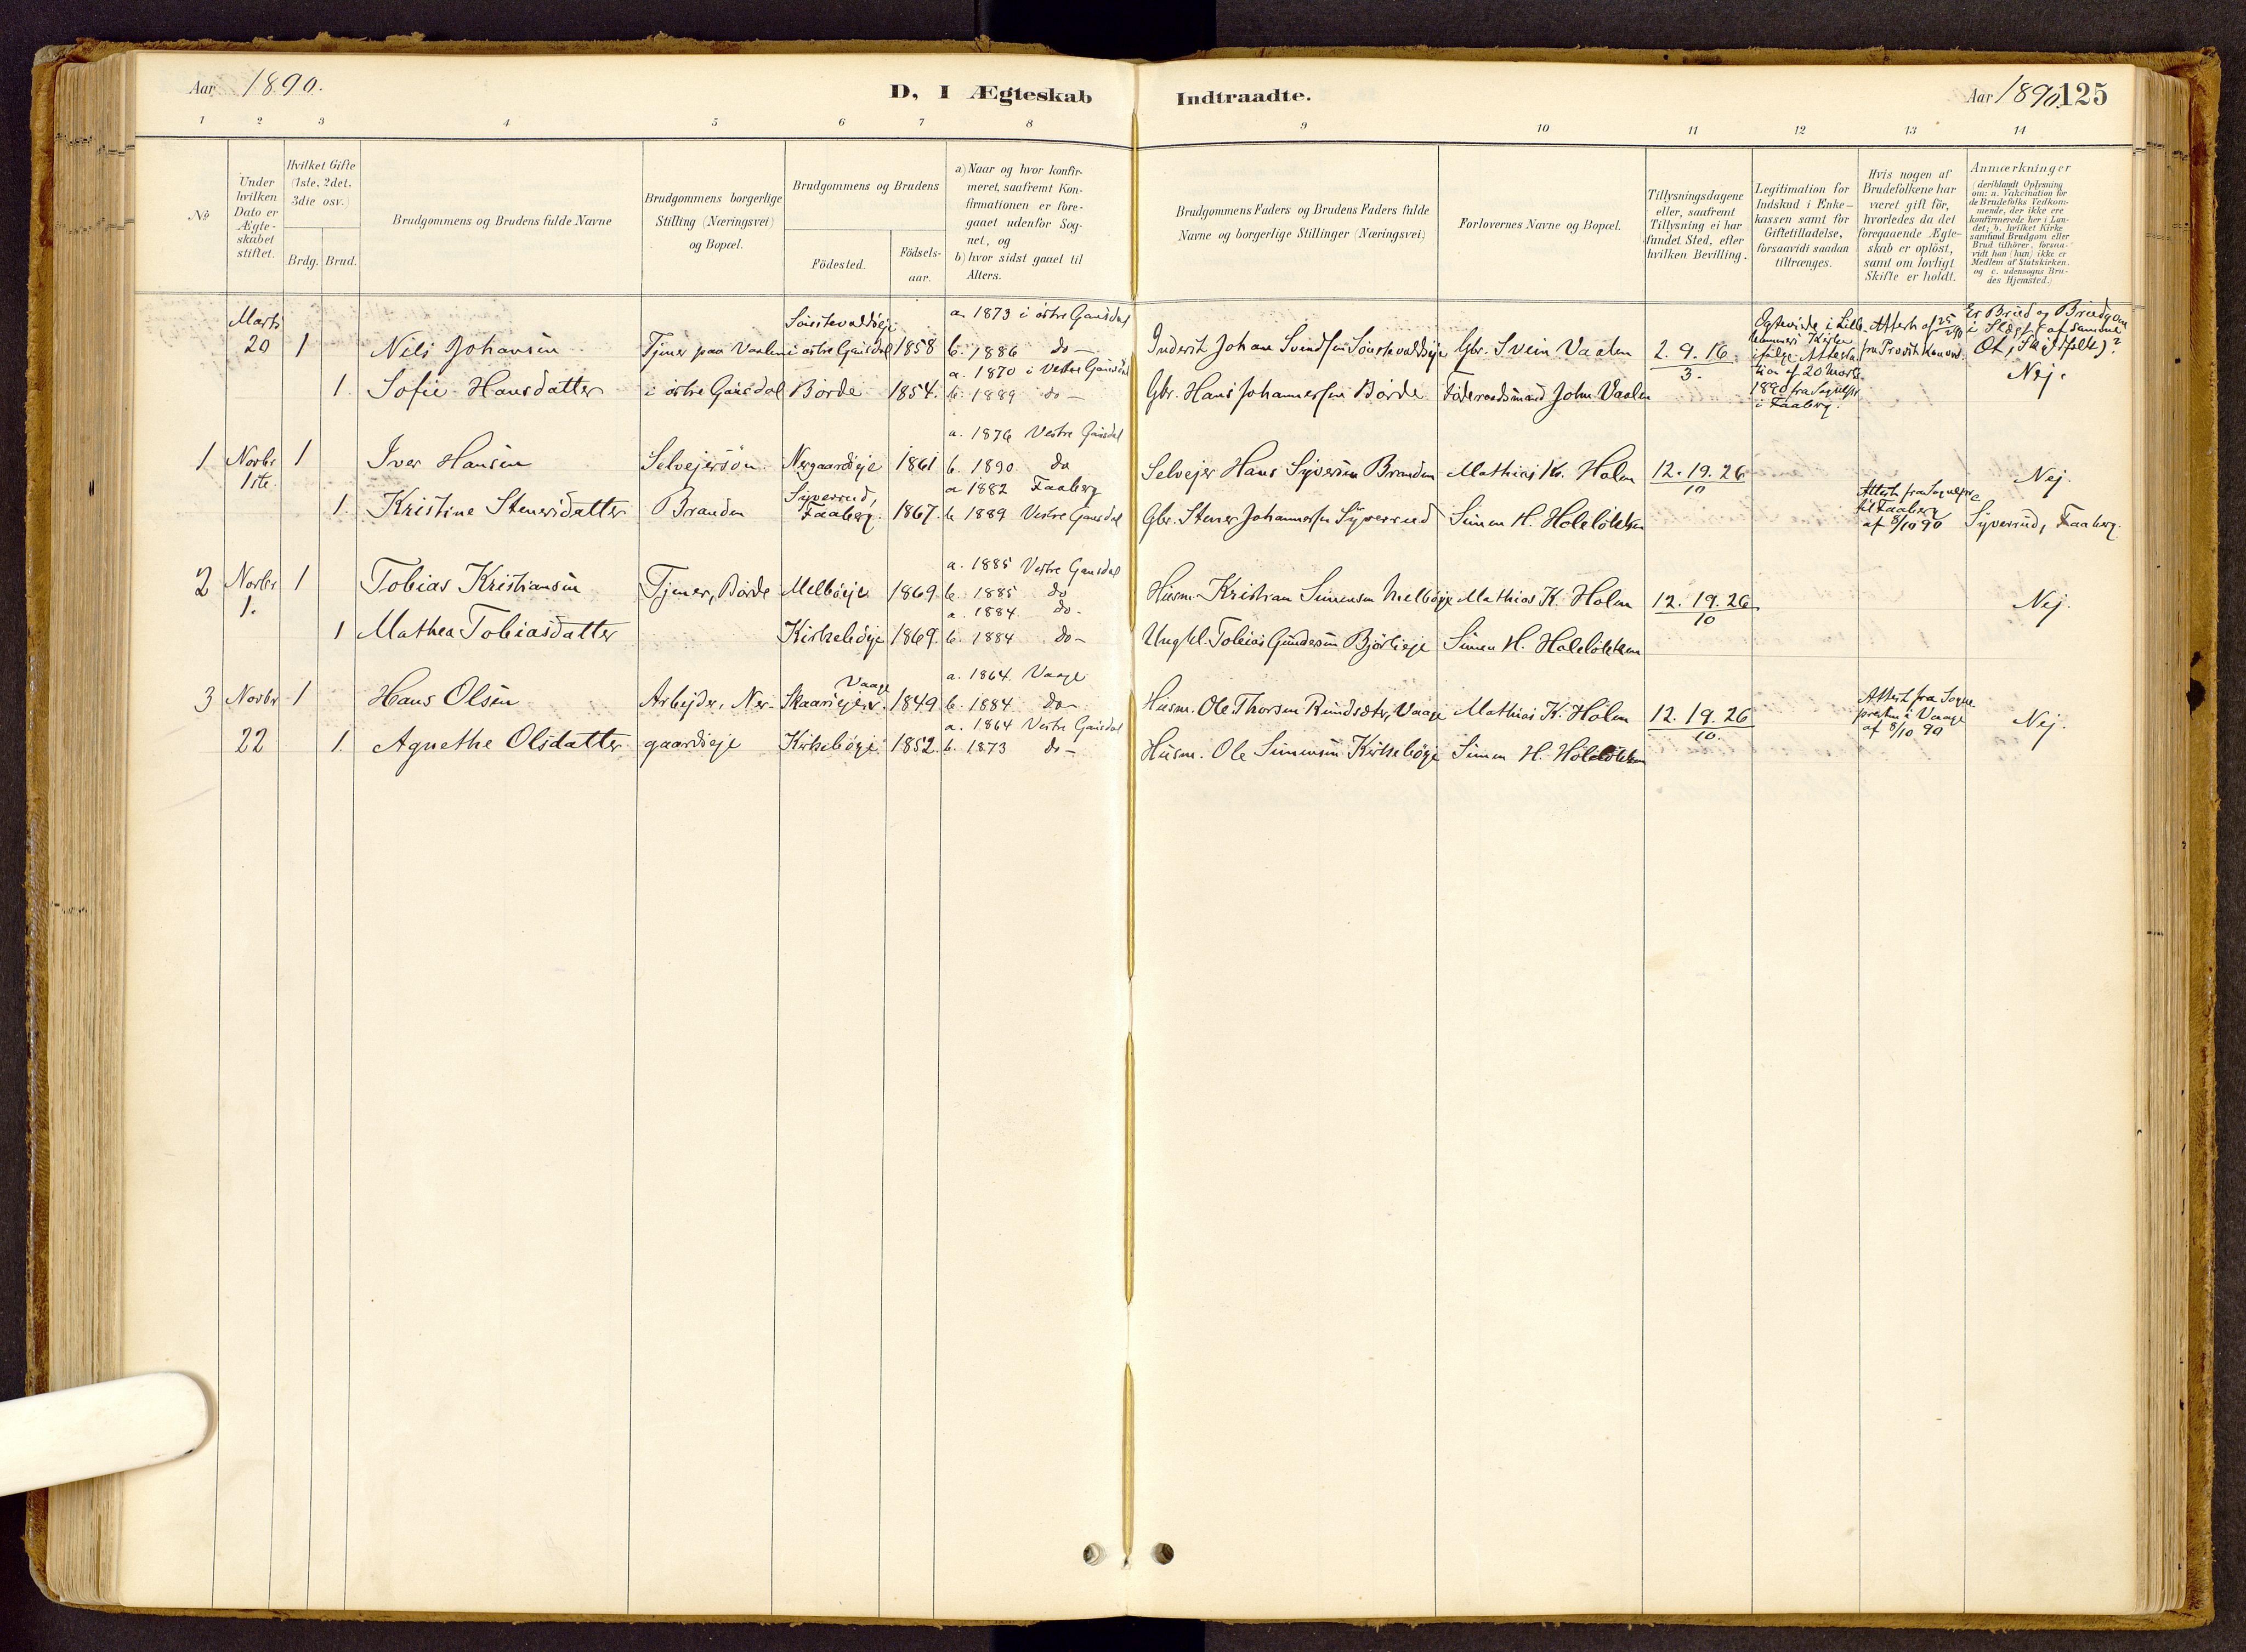 Aar 1890.
D, I Ægteskab Indtraadte.
Aar 1890. 125
1 2 3 4 5 6 7 8 9 10 11 12 13 14
No
Under hvilken Dato er Ægte-skabet stiftet.
Hvilket Gifte (1ste, 2det, 3die osv.)
Brdg. Brud.
Brudgommens og Brudens fulde Navne
Brudgommens borgerlige Stilling (Næringsvei) og Bopæl.
Brudgommens og Brudens
Födested.
Födsels-aar.
a) Naar og hvor konfir-meret, saafremt Kon-firmationen er fore-gaaet udenfor Sog-net, og
b) hvor sidst gaaet til Alters.
Brudgommens Faders og Brudens Faders fulde Navne og borgerlige Stillinger (Næringsvei)
Forlovernes Navne og Bopæl.
Tillysningsdagene eller, saafremt Tillysning ei har fundet Sted, efter hvilken Bevilling.
Legitimation for Indskud i Enke-kassen samt for Giftetilladelse, forsaavidt saadan tiltrænges.
Hvis nogen af Brudefolkene har været gift för, hvorledes da det foregaaende Ægte-skab er oplöst, samt om lovligt Skifte er holdt.
Anmærkninger (deriblandt Oplysning om: a. Vakcination for de Brudefolks Vedkom-mende, der ikke ere konfirmerede her i Lan-det; b. hvilket Kirke samfund Brudgom eller Brud tilhörer, forsaa-vidt han (hun) ikke er Medlem af Statskirken. og c. udensogns Bru-des Hjemsted.)
Marts
20 1 Nils Johansen Tjener paa Vaalen i östre Gausdal 1858
a. 1873 i östre Gausdal
b. 1886 do
Inderst Johan Svendsen
Gbr. Svein Vaalen
2. 9. 16
3.
Ægtevie i Lille-hammers Kirke ifølge Attesta-tion af 20 Marts 1890 fra Sognepr. i Faaberg.
Er Brud og Brudgom i Slægt (af samme Æt, Skyldfolk)?
Nej.
1. Sofie Hansdatter i östre Gausdal Börde 1854.
a. 1870 i Vestre Gausdal
b. 1889 do
Gbr. Hans Johannessen Börde
Föderaadsmand John Vaalen
1 Novbr 1ste 1 Iver Hansen Selvejersön Nergaardseje 1861
a. 1876 Vestre Gausdal
b. 1890 do
Selvejer Hans Syversen Branden
Mathias K. Holen
12. 19. 26
10
Nej.
1. Kristine Stenersdatter Branden Syverrud, Faaberg. 1867.
a 1882 Faaberg
b 1889 Vestre Gausdal
Gbr. Stener Johannessen Syverrud
Simen H. Holelökken
Attest fra Sognepr. til Faaberg af 8/10 90
Syverrud, Faaberg.
2 Novbr 1. 1 Tobias Kristiansen Tjener, Börde Melböeje 1869.
a. 1885 Vestre Gausdal
b. 1885 do
Husm. Kristian Simensen Melböeje
Mathias K. Holen
12. 19. 26
10
Nej.
1 Mathea Tobiasdatter Kirkeböeje 1869.
a. 1884. do.
b. 1884 do
Ungkl. Tobias Gundersen Björlieje
Simen H. Holelökken
3 Novbr 22 1 Hans Olsen Arbejder, Ner- Vaage 1849
a. 1864. Vaage
b. 1884 do
Husm. Ole Thorsen Rundsæter, Vaage
Mathias K. Holen
12. 19. 26
10.
Attest fra Sogne-presten i Vaage af 8/10 90
Nej.
1. Agnethe Olsdatter gaardseje Kirkeböeje 1852.
a. 1864 Vestre Gausdal
b. 1873 do
Husm. Ole Simensen Kirkeböeje
Simen H. Holelökken